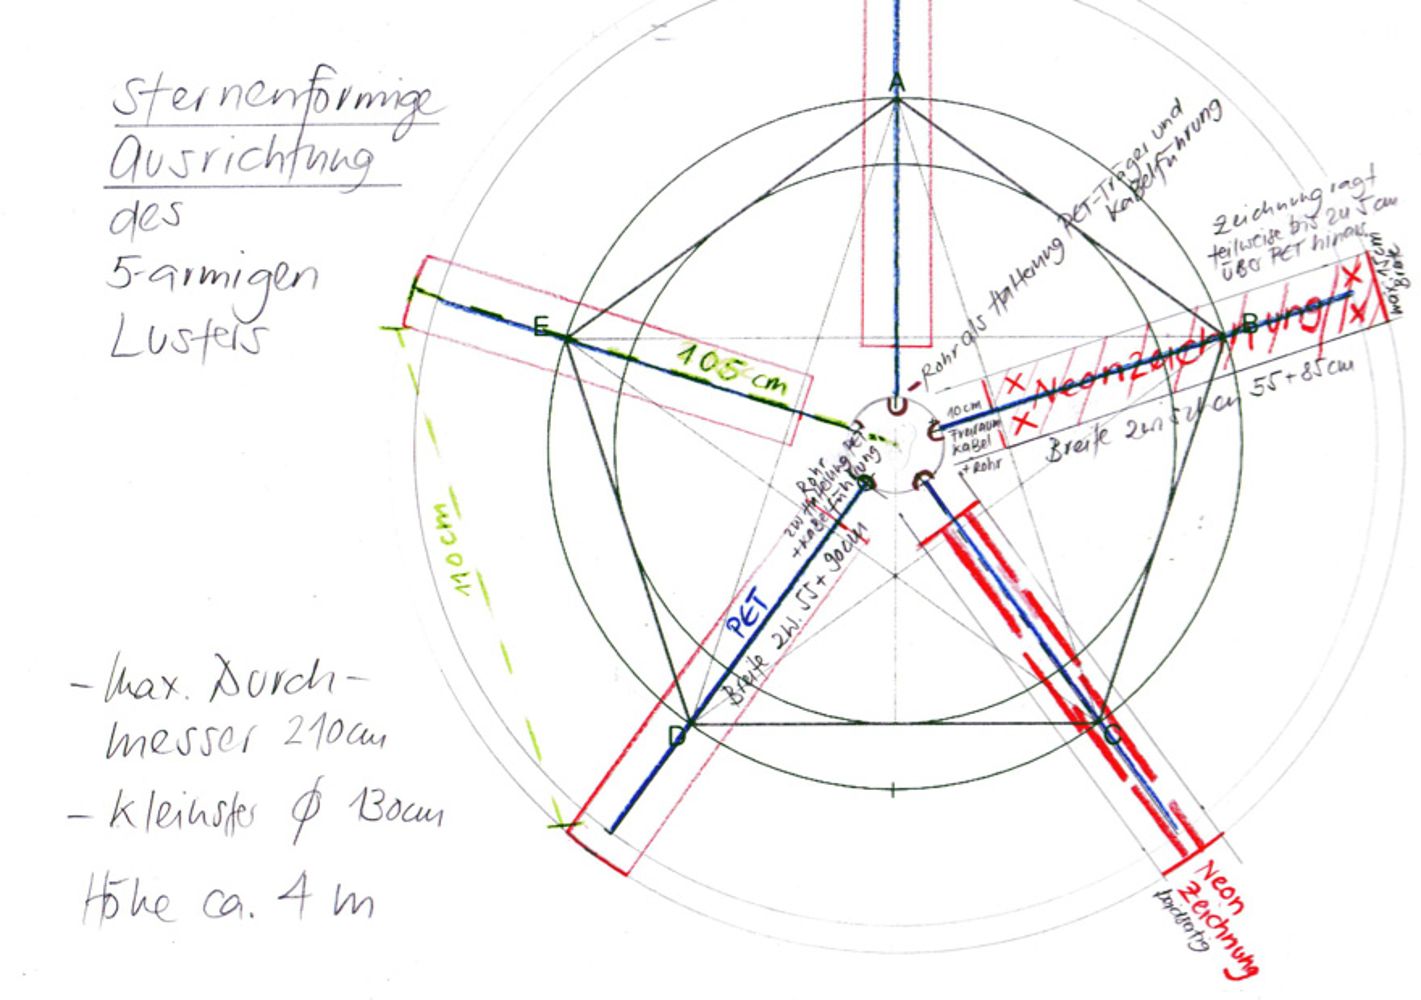 Sternenförmige
Ausrichtung
des
5-armigen
Lusters
- Max. Durch-
messer 210cm
- Kleinster ϕ 130cm
Höhe ca. 4 m
A
B
C
D
E
Rohr als Halterung PET-Träger und
Kabelführung
Zeichnung ragt
teilweise bis zu 5 cm
über PET hinaus
max. 15cm
Neonzeichnung
Breite zwischen 55 + 85cm
10cm
Freiraum
Kabel
+ Rohr
105 cm
110cm
Rohr
zw Halterung PET
+ Kabelführung
PET
Breite zw. 55 + 90cm
Neon
Zeichnung
beidseitig